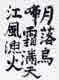 月落烏
啼霜滿天
江楓漁火